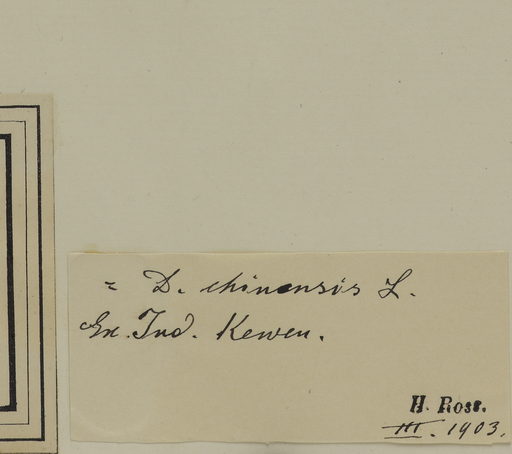 = D. chinensis L.
Ex. Ind. Kewen.
H. Ross.
III. 1903.